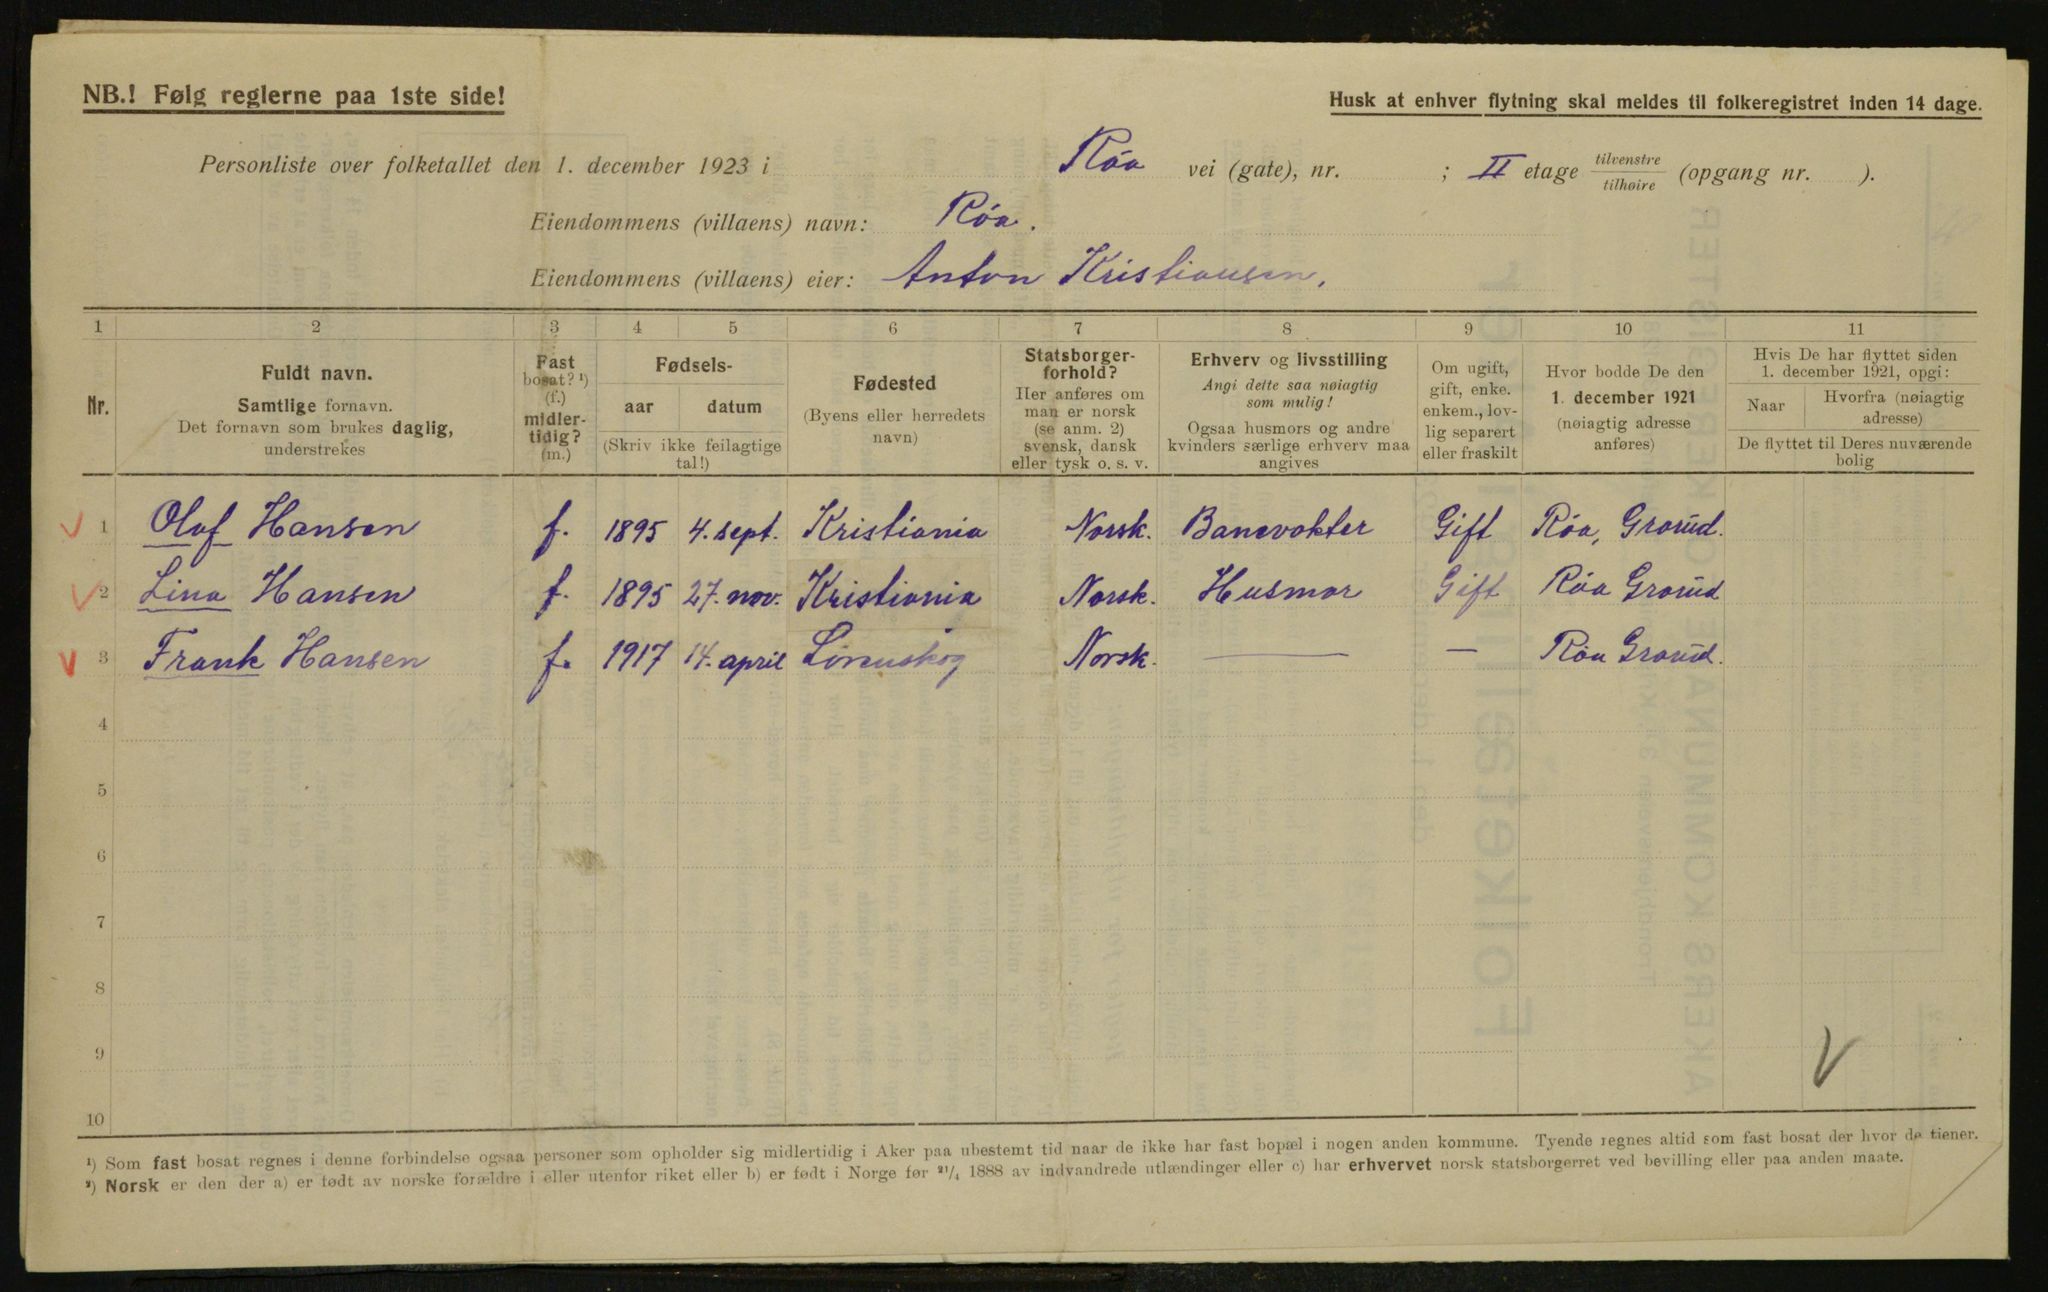 NB.! Følg reglerne paa 1ste side!
Husk at enhver flytning skal meldes til folkeregistret inden 14 dage.
Personliste over folketallet den 1. december 1923 i Røa vei (gate), nr. ; II etage tilvenstre/tilhøire (opgang nr. ).
Eiendommens (villaens) navn: Røa.
Eiendommens (villaens) eier: Anton Kristiansen,
1 2 3 4 5 6 7 8 9 10 11
Nr.
Fuldt navn.
Samtlige fornavn.
Det fornavn som brukes daglig,
understrekes
Fast
bosat? ¹)
(f.)
midler-
tidig?
(m.)
Fødsels-
aar datum
(Skriv ikke feilagtige
tal!)
Fødested
(Byens eller herredets
navn)
Statsborger-
forhold?
Her anføres om
man er norsk
(se anm. 2)
svensk, dansk
eller tysk o. s. v.
Erhverv og livsstilling
Angi dette saa nøiagtig
som mulig!
Ogsaa husmors og andre
kvinders særlige erhverv maa
angives
Om ugift,
gift, enke.
enkem., lov-
lig separert
eller fraskilt
Hvor bodde De den
1. december 1921
(nøiagtig adresse
anføres)
Hvis De har flyttet siden
1. december 1921, opgi:
Naar Hvorfra (nøiagtig
adresse)
De flyttet til Deres nuværende
bolig
1 Olaf Hansen f. 1895 4. sept. Kristiania Norsk. Banevokter Gift Røa, Grorud.
2 Lina Hansen f. 1895 27. nov. Kristiania Norsk. Husmor Gift Røa Grorud
3 Frank Hansen f. 1917 14. april Lørenskog Norsk. — — Røa Grorud.
4
5
6
7
8
9
10
¹) Som fast bosat regnes i denne forbindelse ogsaa personer som opholder sig midlertidig i Aker paa ubestemt tid naar de ikke har fast bopæl i nogen anden kommune. Tyende regnes altid som fast bosat der hvor de tiener.
²) Norsk er den der a) er født av norske forældre i eller utenfor riket eller b) er født i Norge før ²¹/₄ 1888 av indvandrede utlændinger eller c) har erhvervet norsk statsborgerret ved bevilling eller paa anden maate.